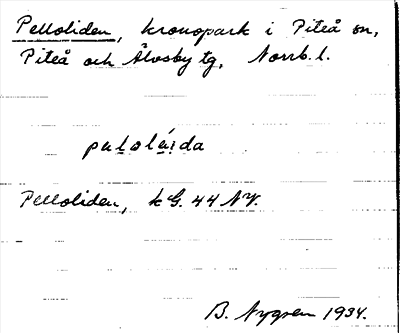 Pelloliden, kronopark i Piteå sn,
Piteå och Älvsby tg, Norrb. l.
Pelloliden, kG. 44 NV.
B. Nygren 1934.